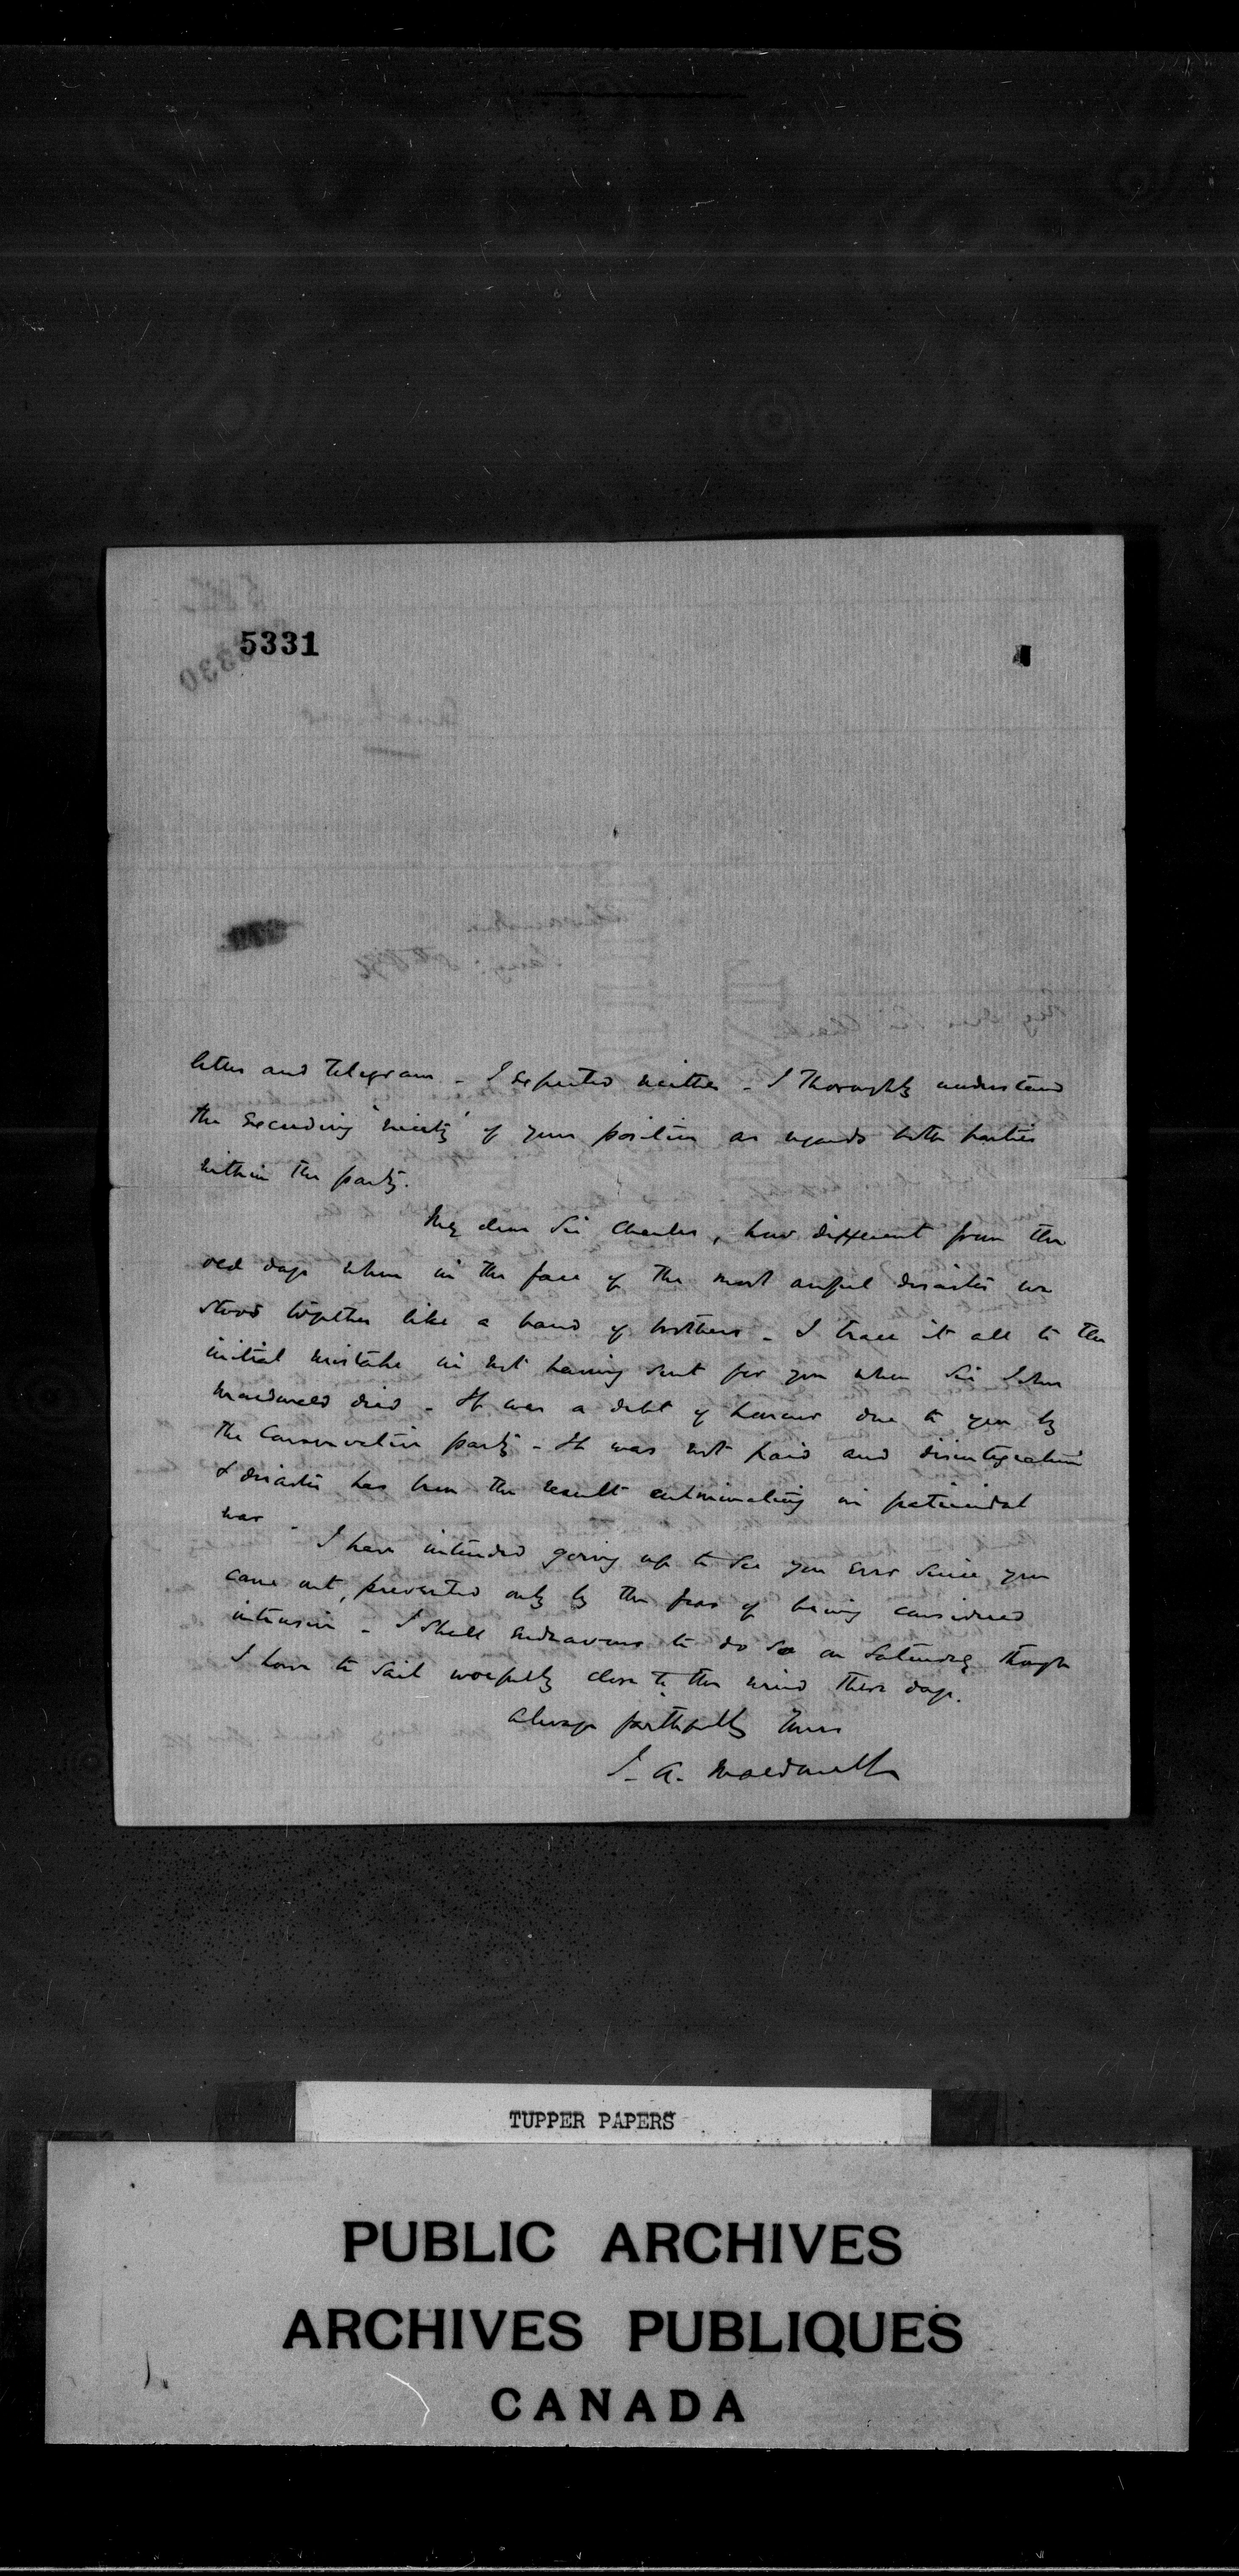 5331
letter and telegram - I expected neither - I thoroughly understand
the exceeding 'nicety' of your position as regards both parties
within the party.
My dear Sir Charles, how different from the
old days when in the face of the most awful disaster we
stood together like a band of brothers - I trace it all to the
initial mistake in not having sent for you when Sir John
Macdonald died - It was a debt of honour due to you by
the Conservative party - It was not paid and disintegration
& disaster has been the result culminating in fratricidal
war - I have intended going up to see you ever since you
came out, prevented only by the fear of being considered
intrusive - I shall endeavour to do so on Saturday though
I have to sail woefully close to the wind these days.
Always faithfully Yours
J. A. Macdonell
TUPPER PAPERS
PUBLIC ARCHIVES
ARCHIVES PUBLIQUES
CANADA